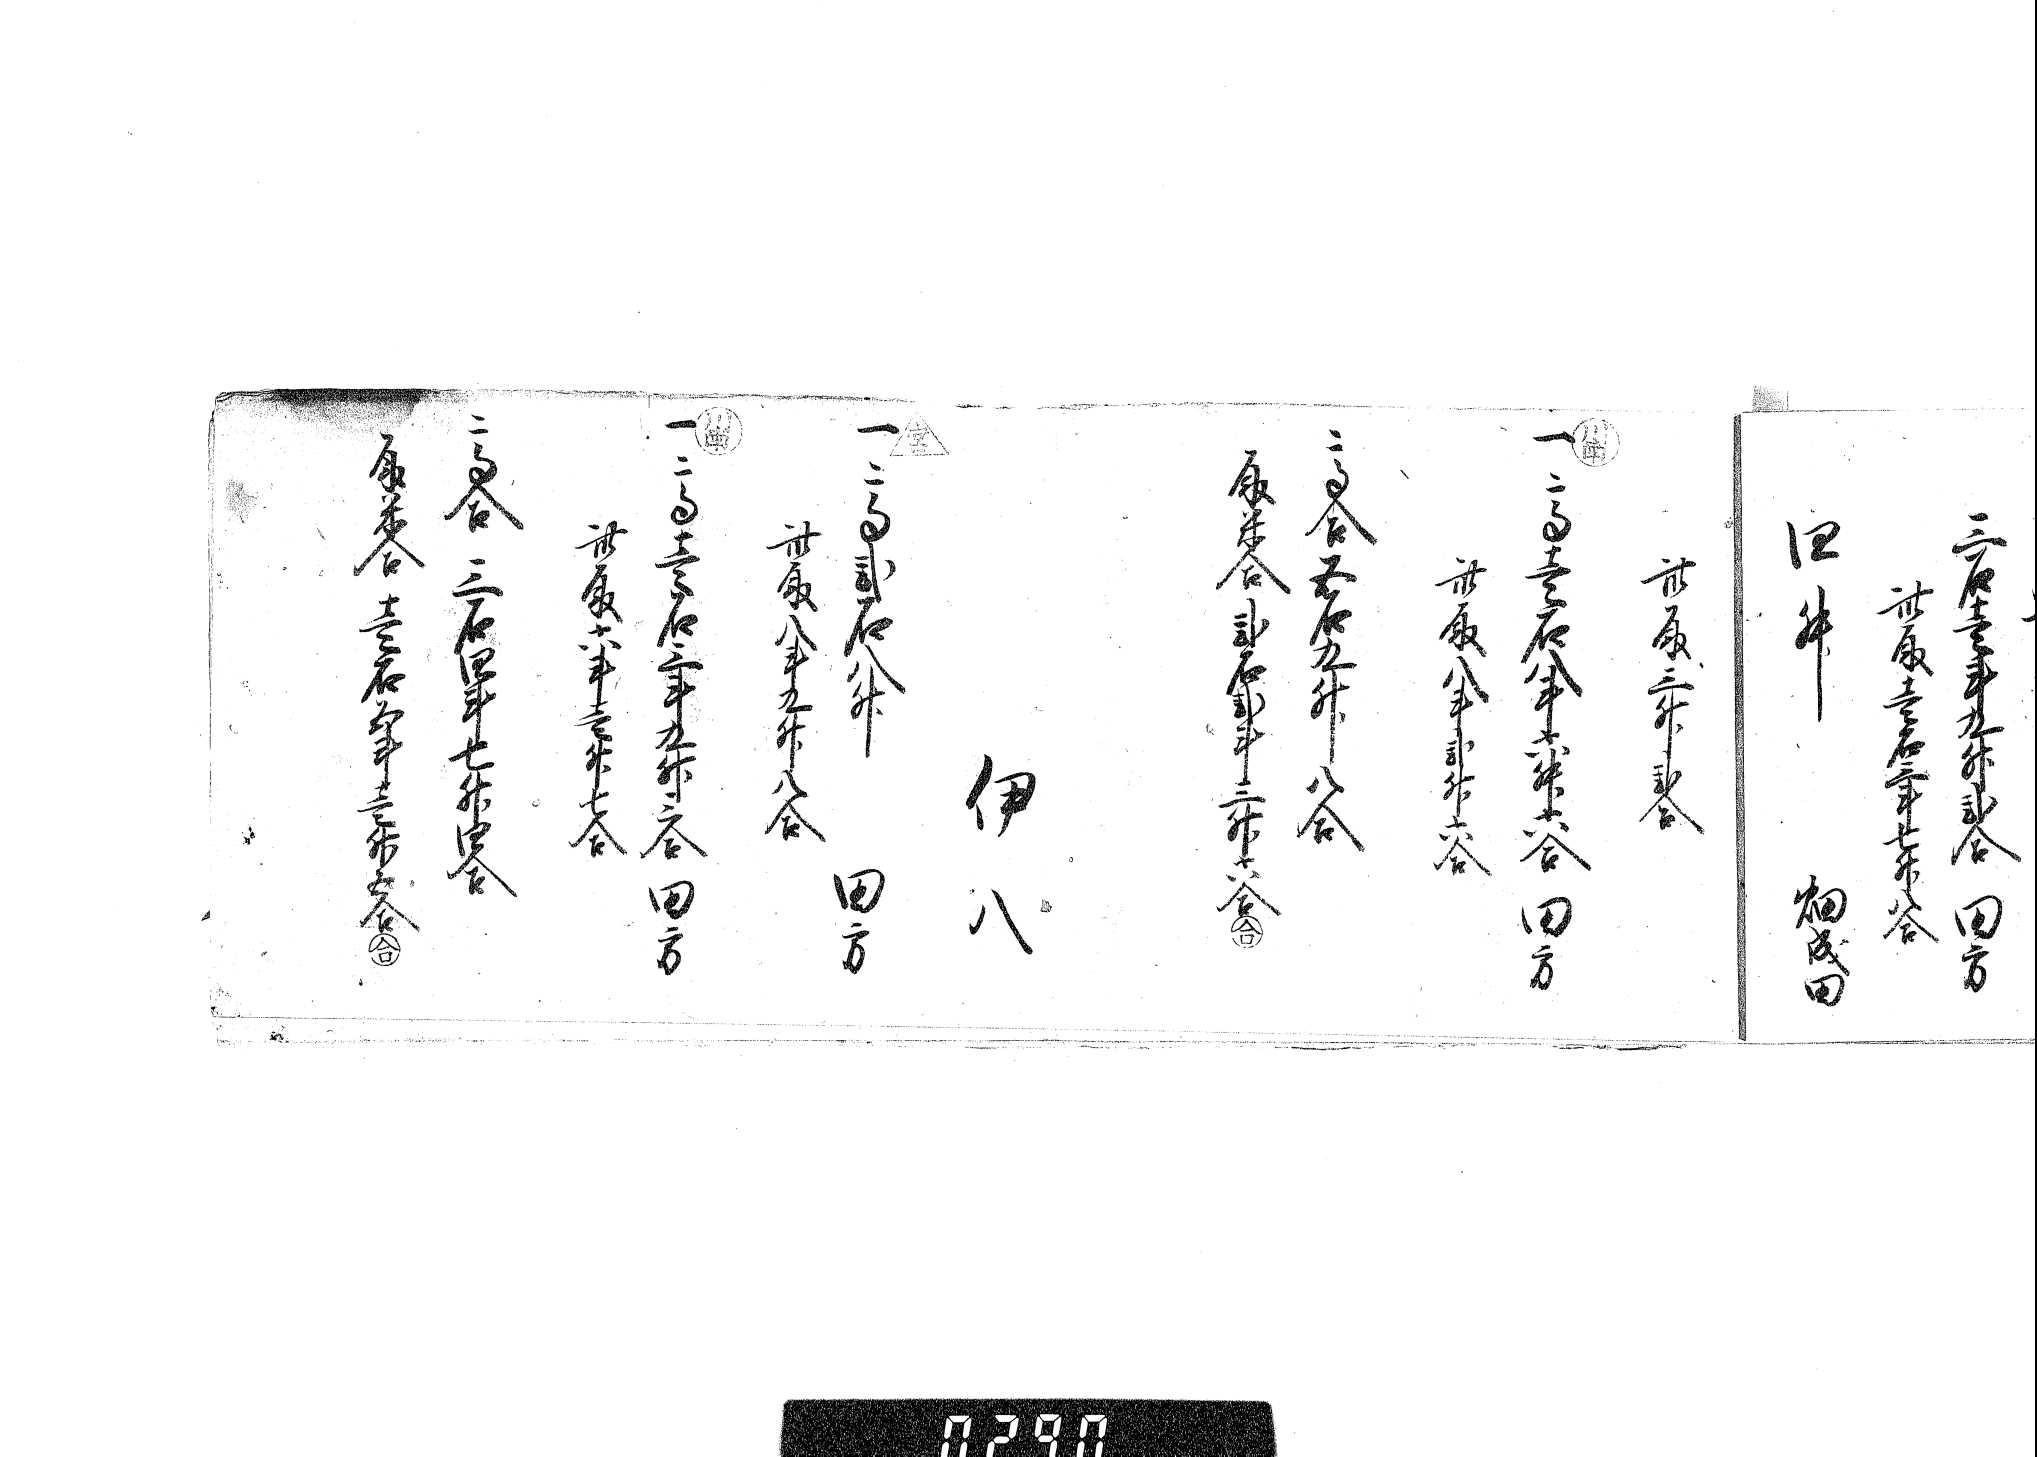 三石壱斗九升弐合 田方
此取壱石三斗七升八合
四升 畑成田
此取三升弐合
川南
一 高壱石八斗六升六合 田方
此取八斗弐升六合
高合五石九升八合
取米合弐石弐斗三升六合
合
伊八
宮
一 高弐石八升 田方
此取八斗九升八合
川南
一 高壱石三斗九升四合 田方
此取六斗壱升七合
高合 三石四斗七升四合
取米合 壱石五斗壱升五合
合
0290